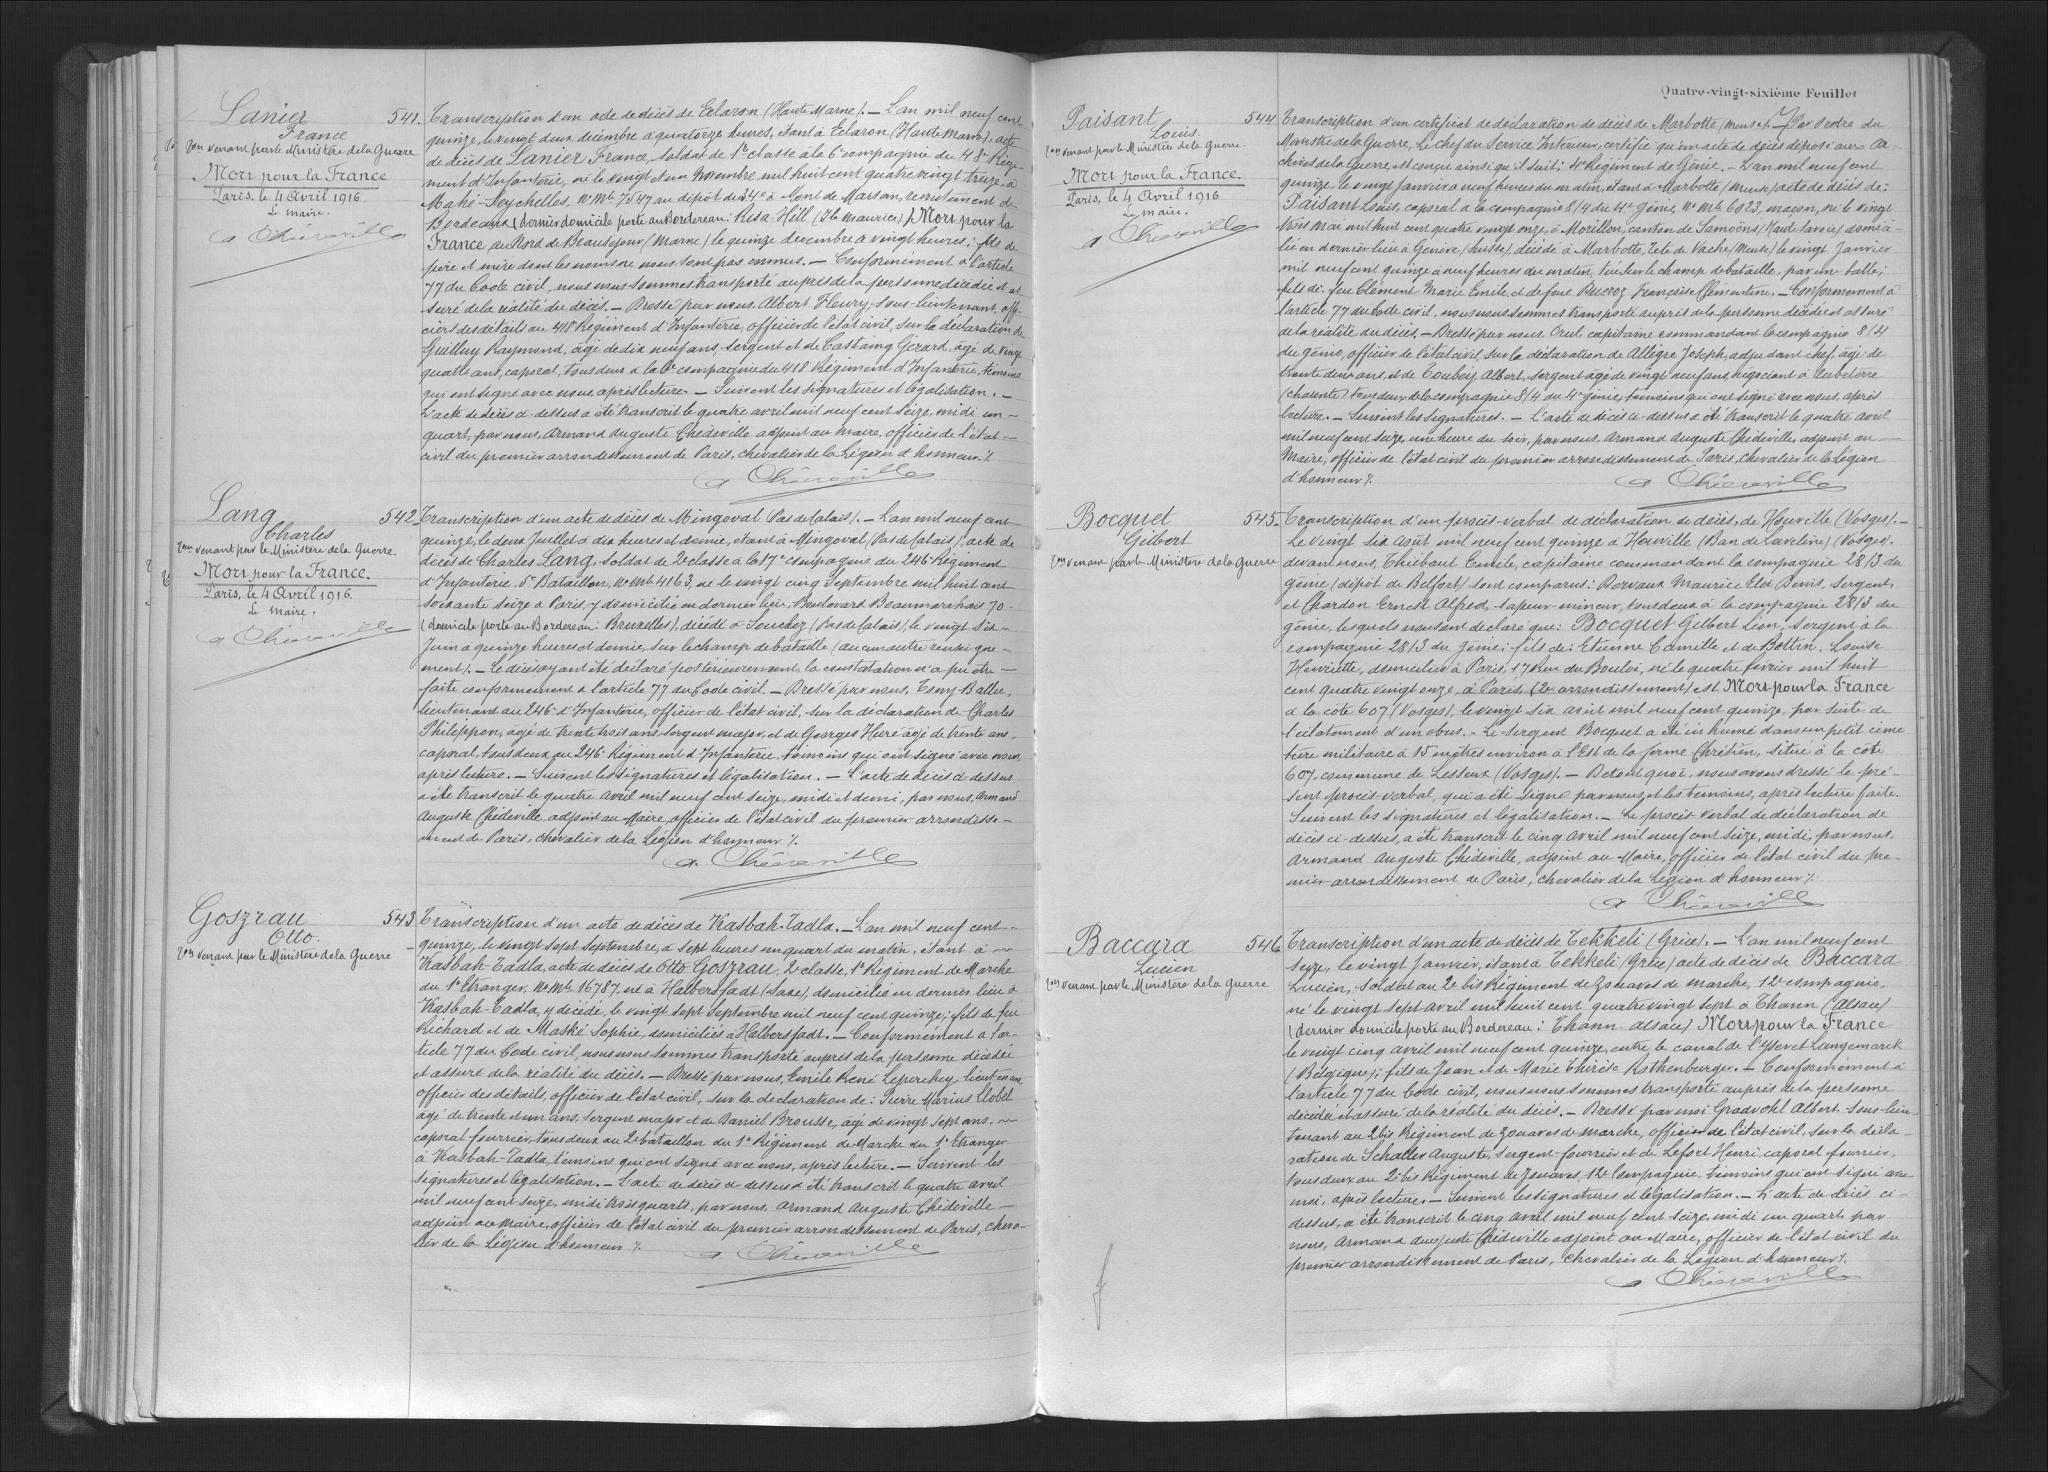 Lanier
France
venant par le Ministère de la Guerre
Mort pour la France
Paris, le 4 Avril 1916
Le maire.
541. Transcription d'un acte de décès de Eclaron (Haute Marne). — L'an mil neuf cent
quinze, le vingt deux décembre à quatorze heures, étant à Eclaron (Haute Marne), acte
de décès de Lanier France, soldat de 1e classe à la 6e compagnie du 418e Régi-
ment d'Infanterie, né le vingt et un Novembre mil huit cent quatre vingt treize, à
Mahé-Seychelles, No Mle 7547 au dépôt du 34e à Mont de Marsan, recrutement de
Bordeaux, (dernier domicile porté au Bordereau: Rosa-Hill (Ile Maurice)) Mort pour la
France au Nord de Beauséjour (Marne) le quinze décembre à vingt heures; fils de
père et mère dont les noms ne nous sont pas connus. — Conformément à l'article
77 du Code civil, nous nous sommes transporté auprès de la personne décédée et as-
suré de la réalité du décès. — Dressé par nous, Albert Fleury, sous-lieutenant, offi-
cier des détails au 418e Régiment d'Infanterie, officier de l'état civil, sur la déclaration de
Guilluy Raymond, âgé de dix neuf ans, sergent et de Castaing Gérard, âgé de vingt
quatre ans, caporal, tous deux à la 6e compagnie du 418e Régiment d'Infanterie, témoins
qui ont signé avec nous, après lecture. — Suivent les signatures et légalisation. —
L'acte de décès ci-dessus a été transcrit le quatre avril mil neuf cent seize, midi un
quart, par nous, Armand Auguste Chédeville adjoint au maire, officier de l'état
civil du premier arrondissement de Paris, chevalier de la Légion d'honneur ./.
A Chédeville
Lang
Charles
venant par le Ministère de la Guerre.
Mort pour la France.
Paris, le 4 Avril 1916.
Le maire.
542. Transcription d'un acte de décès de Mingoval (Pas de Calais). — L'an mil neuf cent
quinze, le deux Juillet à dix heures et demie, étant à Mingoval (Pas de Calais), acte de
décès de Charles Lang, soldat de 2e classe à la 17e compagnie du 246e Régiment
d'Infanterie, 5e Bataillon, No Mle 4163, né le vingt cinq Septembre mil huit cent
soixante seize à Paris, y domicilié en dernier lieu, Boulevard Beaumarchais 70
(domicile porté au Bordereau: Bruxelles), décédé à Souchez (Pas de Calais), le vingt six
Juin à quinze heures et demie, sur le champ de bataille (aucun autre renseigne-
ment). — Le décès ayant été déclaré postérieurement, la constatation n'a pu être
faite conformément à l'article 77 du Code civil. — Dressé par nous, Ballu,
lieutenant au 246e d'Infanterie, officier de l'état civil, sur la déclaration de Charles
Philippon, âgé de trente trois ans, sergent major, et de Georges Héré âgé de trente ans,
caporal, tous deux au 246e Régiment d'Infanterie, témoins qui ont signé avec nous,
après lecture. — Suivent les signatures et légalisation. — L'acte de décès ci-dessus
a été transcrit le quatre avril mil neuf cent seize, midi et demi, par nous, Armand
Auguste Chédeville, adjoint au Maire, officier de l'état civil du premier arrondisse-
ment de Paris, chevalier de la Légion d'honneur ./.
A Chédeville
Goszrau
Otto.
venant par le Ministère de la Guerre
543. Transcription d'un acte de décès de Kasbah-Tadla. — L'an mil neuf cent
quinze, le vingt sept Septembre, à sept heures un quart du matin, étant à
Kasbah-Tadla, acte de décès de Otto Goszrau, 2e classe, 1er Régiment de Marche
du 1er Etranger, No Mle 16787, né à Halberstadt (Saxe), domicilié en dernier lieu à
Kasbah-Tadla, y décédé, le vingt sept Septembre mil neuf cent quinze; fils de feu
Richard et de Maské Sophie, domiciliés à Halberstadt. — Conformément à l'ar-
ticle 77 du Code civil, nous nous sommes transporté auprès de la personne décédée
et assuré de la réalité du décès. — Dressé par nous, Emile René Leperchey, lieutenant
officier des détails, officier de l'état civil, sur la déclaration de: Pierre Marius Llobet
âgé de trente et un ans, sergent major et de Daniel Brousse, âgé de vingt sept ans,
caporal fourrier, tous deux au 2e bataillon du 1er Régiment de Marche du 1er Etranger
à Kasbah-Tadla, témoins qui ont signé avec nous, après lecture. — Suivent les
signatures et légalisation. — L'acte de décès ci-dessus a été transcrit le quatre avril
mil neuf cent seize, midi trois quarts, par nous, Armand Auguste Chédeville
adjoint au Maire, officier de l'état civil du premier arrondissement de Paris, cheva-
lier de la Légion d'honneur ./.
A Chédeville
Quatre-vingt-sixième Feuillet
Paisant
Louis.
venant par le Ministère de la Guerre.
Mort pour la France.
Paris, le 4 Avril 1916
Le maire.
544. Transcription d'un certificat de déclaration de décès de Marbotte (Meuse). — Par ordre du
Ministre de la Guerre, le chef du Service Intérieur, certifie qu'un acte de décès déposé aux Ar-
chives de la Guerre, est conçu ainsi qu'il suit: 4e Régiment de Génie. — L'an mil neuf cent
quinze, le vingt janvier à neuf heures du matin, étant à Marbotte (Meuse) acte de décès de:
Paisant Louis, caporal à la compagnie 8/4 du 4e génie, No Mle 6023, maçon, né le vingt
trois Mai mil huit cent quatre vingt onze, à Morillon, canton de Samoëns (Haute Savoie) domici-
lié en dernier lieu à Genève (Suisse), décédé à Marbotte, Tête de Vache (Meuse) le vingt Janvier
mil neuf cent quinze à neuf heures du matin, tué sur le champ de bataille, par une balle;
fils de: feu Clément Marie Emile, et de feue Ducroz Françoise Clémentine. — Conformément à
l'article 77 du Code civil, nous nous sommes transporté auprès de la personne décédée et assuré
de la réalité du décès. — Dressé par nous, capitaine commandant la compagnie 8/4
du génie, officier de l'état civil, sur la déclaration de Allègre Joseph, adjudant chef âgé de
trente deux ans, et de Albert, sergent âgé de vingt neuf ans, négociant à Aubeterre
(Charente) tous deux de la compagnie 8/4 du 4e génie, témoins qui ont signé avec nous, après
lecture. — Suivent les signatures. — L'acte de décès ci-dessus a été transcrit le quatre avril
mil neuf cent seize, une heure du soir, par nous, Armand Auguste Chédeville, adjoint au
Maire, officier de l'état civil du premier arrondissement de Paris, chevalier de la Légion
d'honneur ./.
A Chédeville
Bocquet
Gilbert
venant par le Ministère de la Guerre
545. Transcription d'un procès-verbal de déclaration de décès, de Honville (Vosges). —
Le vingt six Août mil neuf cent quinze à Honville (Ban de Laveline) (Vosges).
devant nous, Thiébaut Emile, capitaine commandant la compagnie 28/3 du
génie (dépôt de Belfort) sont comparus: Dervaux Maurice Eloi Denis, Sergent,
et Chardon Ernest Alfred, sapeur-mineur, tous deux à la compagnie 28/3 du
génie, lesquels nous ont déclaré que: Bocquet Gilbert Léon, Sergent à la
compagnie 28/3 du génie; fils de: Etienne Camille et de Bottin, Louise
Henriette, domicilié à Paris, 17 Rue du Bouloi, né le quatre février mil huit
cent quatre vingt onze, à Paris (2e arrondissement) est Mort pour la France
à la côte 607 (Vosges), le vingt six août mil neuf cent quinze, par suite de
l'éclatement d'un obus. — Le Sergent Bocquet a été inhumé dans un petit cime-
tière militaire à 15 mètres environ à l'Est de la ferme Chrétien, situé à la côte
607, commune de Lesseux (Vosges). — De tout quoi, nous avons dressé le pré-
sent procès-verbal, qui a été signé par nous et les témoins, après lecture faite.
Suivent les signatures et légalisation. — Le procès verbal de déclaration de
décès ci-dessus, a été transcrit le cinq avril mil neuf cent seize, midi, par nous,
Armand Auguste Chédeville, adjoint au Maire, officier de l'état civil du pre-
mier arrondissement de Paris, chevalier de la Légion d'honneur ./.
A Chédeville
Baccara
Lucien
venant par le Ministère de la Guerre
546. Transcription d'un acte de décès de Tekkeli (Grèce). — L'an mil neuf cent
seize, le vingt Janvier, étant à Tekkeli (Grèce) acte de décès de Baccara
Lucien, soldat au 2e bis Régiment de Zouaves de marche, 12e compagnie,
né le vingt sept avril mil huit cent quatre vingt sept à Thann (Alsace)
(dernier domicile porté au Bordereau: Thann-Alsace) Mort pour la France
le vingt cinq avril mil neuf cent quinze, entre le canal de l'Yser et Langemarck
(Belgique); fils de Jean et de Marie Thérèse Rothenburger. — Conformément à
l'article 77 du Code civil, nous nous sommes transporté auprès de la personne
décédée et assuré de la réalité du décès. — Dressé par moi Gradvohl Albert, Sous-lieu-
tenant au 2e bis Régiment de Zouaves de marche, officier de l'état civil, sur la décla-
ration de Schaller Auguste, Sergent-fourrier et de Lefort Henri, caporal fourrier,
tous deux au 2e bis Régiment de Zouaves, 12e Compagnie, témoins qui ont signé avec
moi, après lecture. — Suivent les signatures et légalisation. — L'acte de décès ci-
dessus, a été transcrit le cinq avril mil neuf cent seize, midi un quart, par
nous, Armand Auguste Chédeville adjoint au Maire, officier de l'état civil du
premier arrondissement de Paris, Chevalier de la Légion d'honneur ./.
A Chédeville